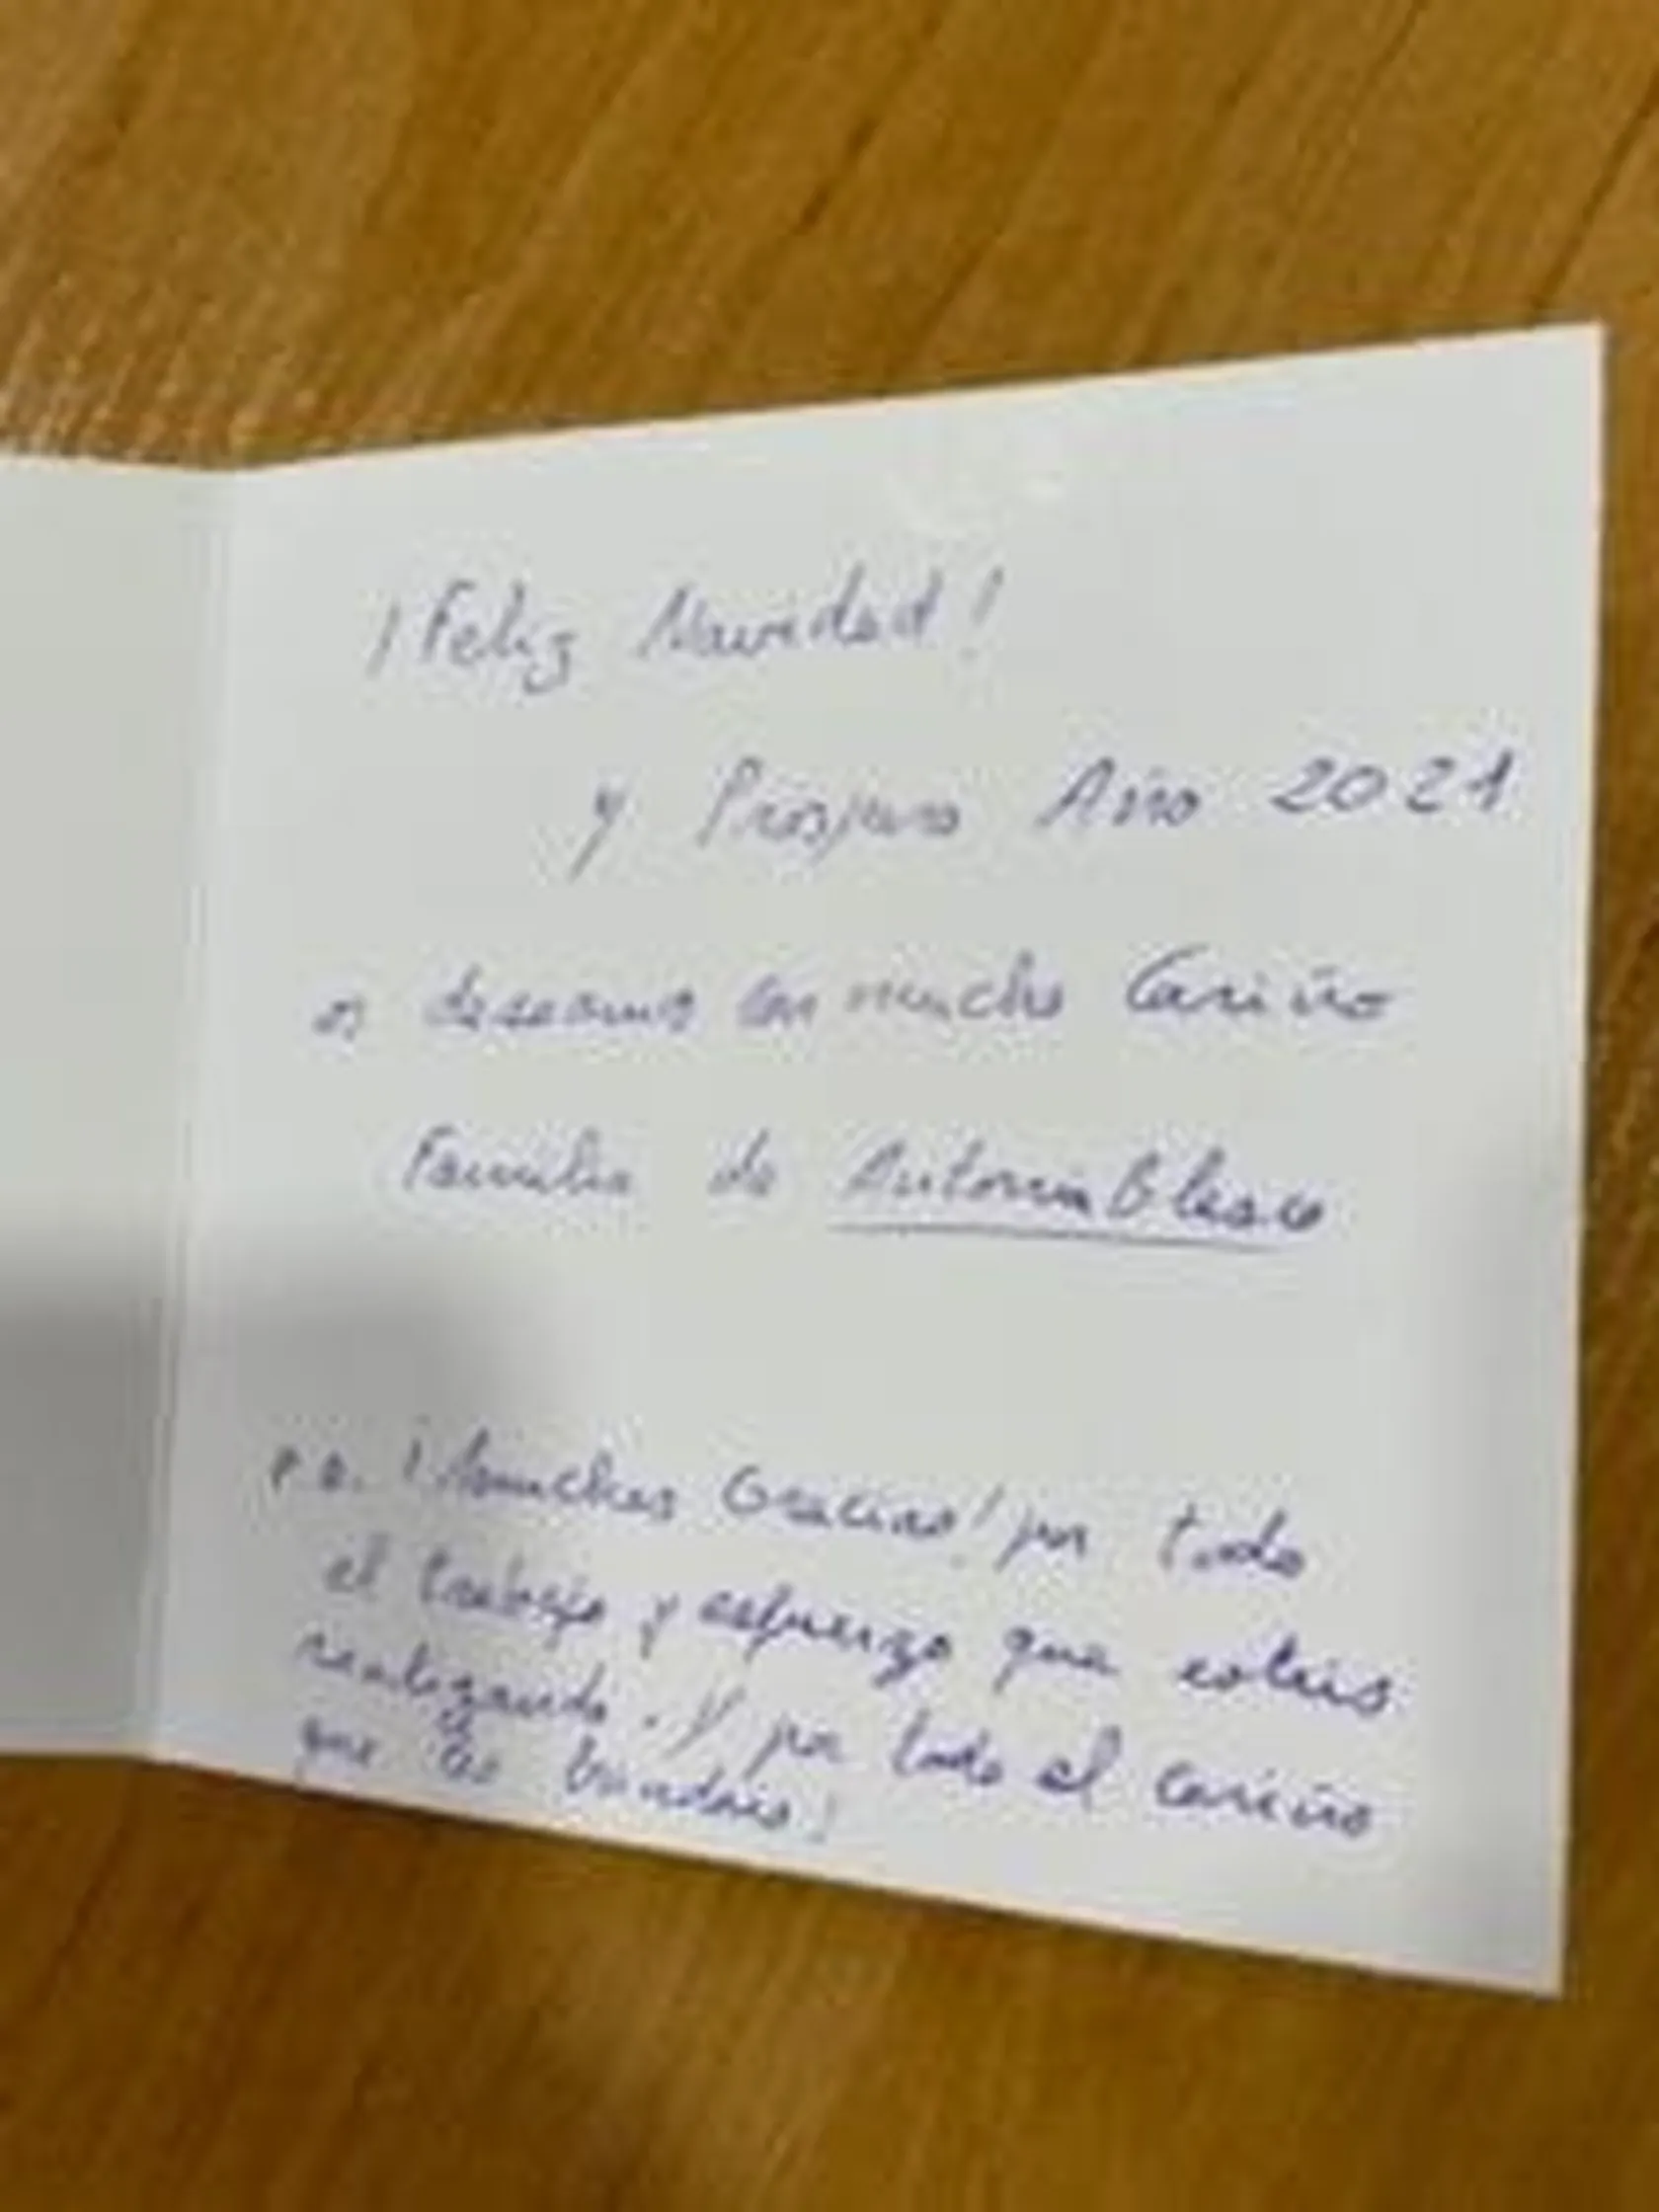 ¡Feliz Navidad!
y Prospero Año 2021
os deseamos con mucho Cariño
Familia de Antonia Blasco
P.D. ¡Muchas Gracias! por todo
el trabajo y esfuerzo que estáis
realizando. Y por todo el cariño
que les brindáis!